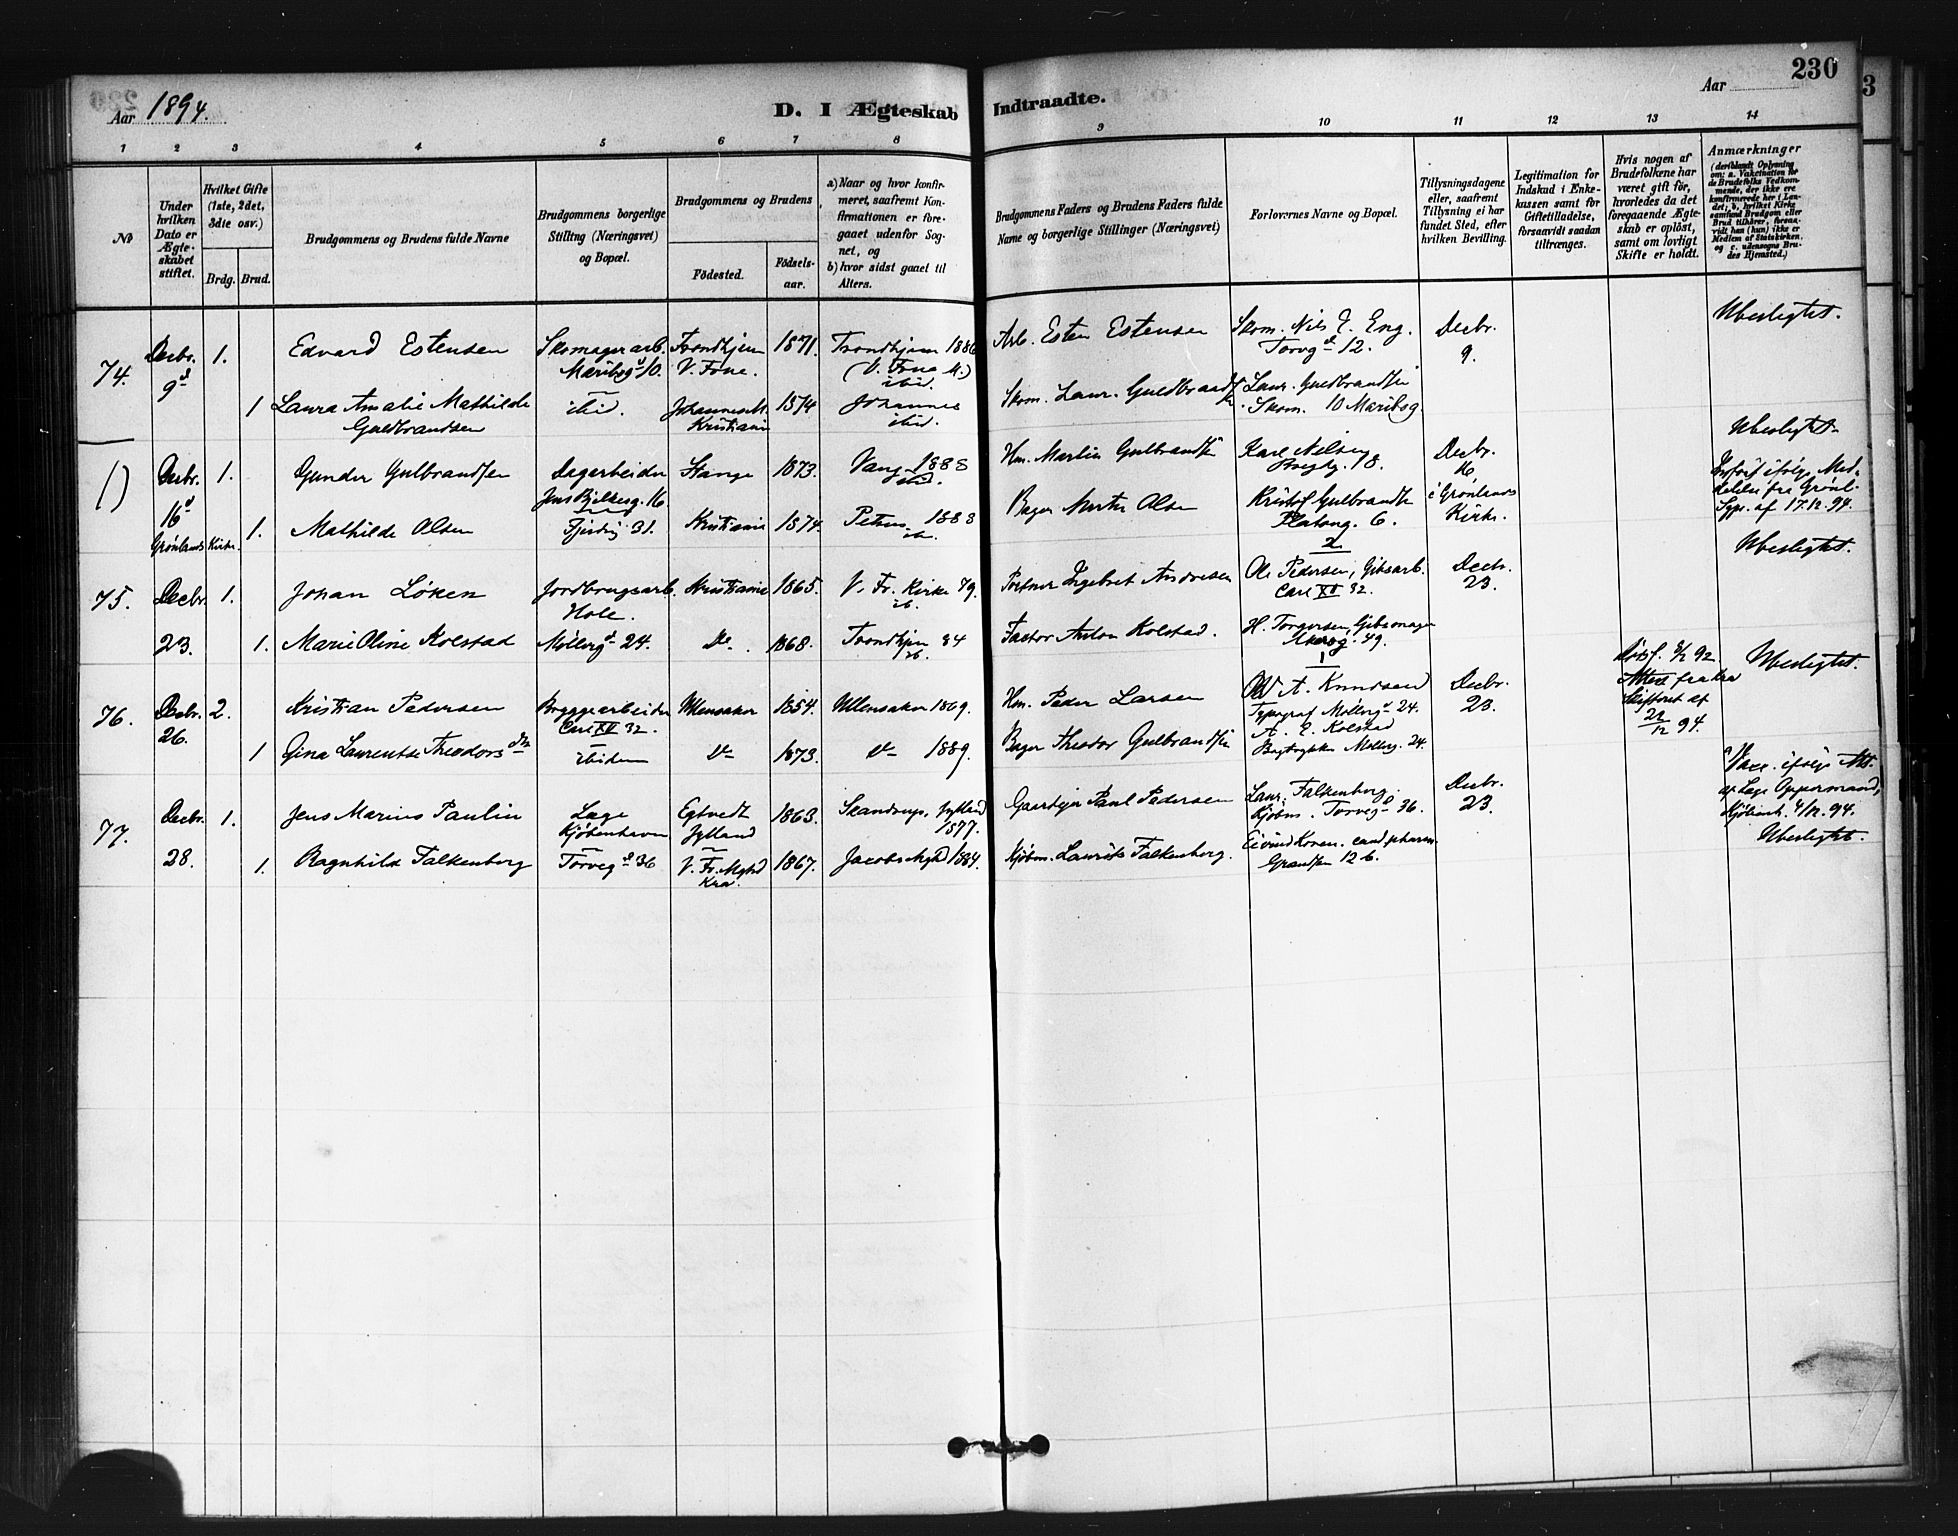 Aar 1894.
D. I Ægteskab Indtraadte.
Aar
230
3
1 2 3 4 5 6 7 8 9 10 11 12 13 14
No
Under hvilken Dato er Ægteskabet stiftet.
Hvilket Gifte (1ste, 2det, 3die osv.)
Brdg. Brud.
Brudgommens og Brudens fulde Navne
Brudgommens borgerlige Stilling (Næringsvei) og Bopæl.
Brudgommens og Brudens
Födested.
Födselsaar.
a) Naar og hvor konfirmeret, saafremt Konfirmationen er foregaaet udenfor Sognet, og
b) hvor sidst gaaet til Alters.
Brudgommens Faders og Brudens Faders fulde Navne og borgerlige Stillinger (Næringsvei)
Forlovernes Navne og Bopæl.
Tillysningsdagene eller, saafremt Tillysning ei har fundet Sted, efter hvilken Bevilling.
Legitimation for Indskud i Enkekassen samt for Giftetilladelse, forsaavidt saadan tiltrænges.
Hvis nogen af Brudefolkene har været gift för, hvorledes da det foregaaende Ægteskab er oplöst, samt om lovligt Skifte er holdt.
Anmærkninger
(deriblandt Oplysning om: a. Vaccination for de Brudefolks Vedkommende, der ikke ere konfirmerede her i Landet; b. hvilket Kirkesamfund Brudgom eller Brud tilhører, forsaavidt han (hun) ikke er Medlem af Statskirken, og c. udensogns Brudes Hjemsted.)
74. Decbr. 9d 1. Edvard Estensen Skomagerarb. Maribog 10. Trondhjem V. Frue. 1871. Trondhjem 1886 (V. Frue K.) ibid. Arb. Esten Estensen Skom. Nils E. Eng. Torvgd 12. Decbr. 9. Ubeslegtet.
1 Laura Amalie Mathilde Guldbrandsen ibid. Johannes M. Kristiania 1874 Johannes ibid. Skom. Laur. Guldbrandsen Laur. Guldbrandsen Skom. 10 Maribog.
1) Decbr. 16d Grønlands Kirke. 1. Gunder Gulbrandsen Dagarbeider Jens Bjelkesg. 16 Stange 1873. Vang 1888 ibid. Hm. Martin Gulbrandsen Karl Nilsen 18. Decbr. 16 i Grønlands Kirke. Ubeslegtet
Indført ifølge Meddelelse fra Grønl. Sgpr. af 17.12.94.
1. Mathilde Olsen 31. Kristiania 1874. Petrus 1888 ib. Bager Olsen Kristof Gulbrandsen Platoug. 6.
75. Decbr. 23. 1. Johan Løken Jordbrugsarb. Hole. Kristiania 1865. V. Fr. Kirke 79. ib. Portner Ingebret Andresen Ole Pedersen, Gibsarb. Carl XII 32. Decbr. 23. Ubeslegtet.
1. Marie Oline Kolstad Møllergd 24. Do. 1868. Trondhjem 84 ib. Faktor Anton Kolstad. H. Torgersen, Gibsmager Akersg. 49.
76. Decbr. 26. 2. Kristian Pedersen Bryggearbeider Carl XII 32. Ullensaker 1854. Ullensaker 1869. Hm. Peder Larsen A. Knudsen Typograf Møllergd 24. Decbr. 23. Dødsf. 92. Attest fra Kra Skifteret af 22/12 94. Ubeslegtet.
1 Gina Laurentse Theodorsdtr ibidem Do 1873. do 1889. Bager Theodor Gulbrandsen A. E. Kolstad Bogtrykker Møllerg. 24.
77. Decbr. 28. 1. Jens Marius Paulin Læge Kjøbenhavn Egtvedt Jylland 1863. Skanderup, Jylland 1877. Gaardejer Paul Pedersen Laur. Falkenberg Kjøbm. Torvegd 36. Decbr. 23. Vacc. ifølge Att. af Læge Oppermand, Kjøbenh. 4/12.94. Ubeslegtet.
1. Ragnhild Falkenberg Torvegd 36 V. Fr. Mghd Kra. 1867. Jacobs Mghd 1884. Kjøbm. Laurits Falkenberg. Eivind Koren. cand. pharm. Grændsen 12 b.